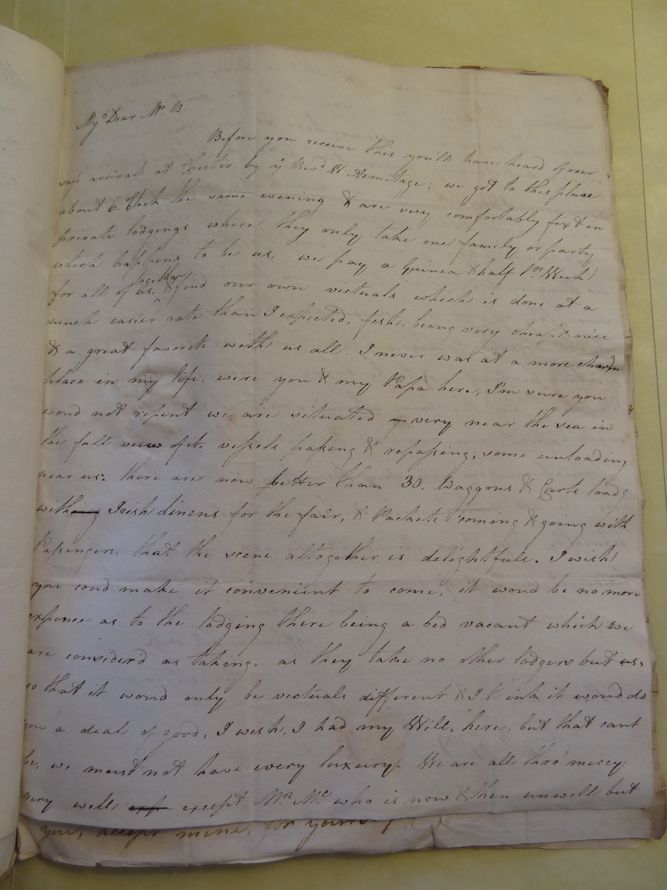 My Dear Mr. B.
Before you receive this you'll have heard of our
safe arrival at Chester by ye Revd. Mr Armitage; we got to this place
about 6. Clock the same evening & are very comfortably fixt in
private lodgings where they only take one family or party
which happens to be us, we pay a Guinea & half Pr. Week
for all of us together & find our own victuals which is done at a
much easier rate than I expected, fish being very cheap & nice
& a great favorite with us all. I never was at a more charmg
place in my life, were you & my Papa here, I'm sure you
woud not repent we are situated very near the sea in
the full view of it. vessels pasing & repassing, some unloading
near us: there are now better than 30. Waggons & Carts loadg
with Irish linens for the fair, & Packets coming & going with
Passengers. that the scene altogether is delightfull. I wish
you coud make it convenient to come, it woud be no more
expence as to the lodging there being a bed vacant which we
are consider'd as taking. as they take no other lodgers but us.
so that it woud only be victuals different & I think it woud do
you a deal of good, I wish, I had my Will, here, but that cant
be, we must not have every luxury. We are all thro' mercy
very well except Mrs. Mc. who is now & then unwell but
you, accept mine, for yours